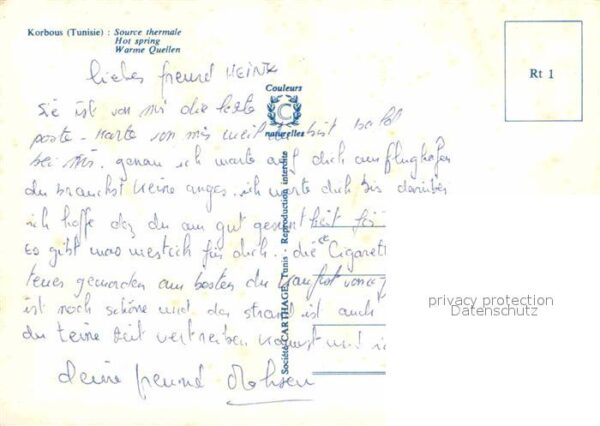 Korbous (Tunisie) : Source thermale
Hot spring
Warme Quellen
Rt 1
Couleurs
C
naturelles
Société CARTHAGE, Tunis - Reproduction interdite
liebes freund HEINK
Sie ist von mir die
poste - Karte von mir weil du bist bald
bei mir. genau ich warte auf dich am flughafen
du brauchst keine anges. ich warte dich bis darüber
ich hoffe daz du am gut gesundheit
Es gibt was für dich. die Cigarett
teuer geworden am besten du
ist noch schöne und der strand ist auch
du deine Zeit vertreiben kannst und
deine freund Mohsen
privacy protection
Datenschutz